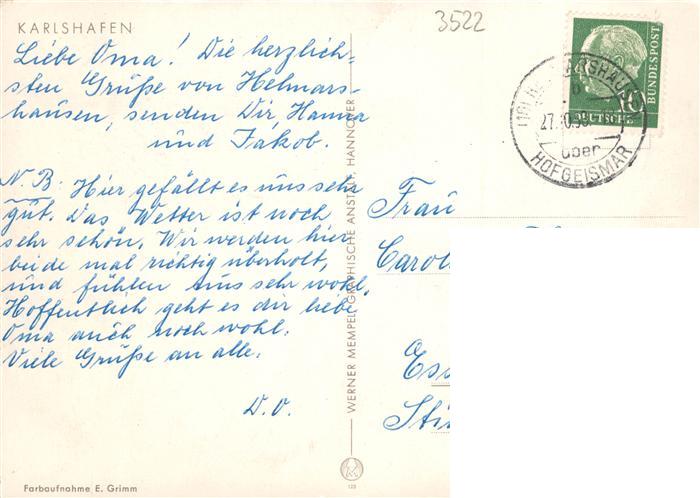 KARLSHAFEN
3522
Liebe Oma! Die herzlich-
sten Grüße von Helmars-
hausen, senden Dir, Hanna
und Jakob.
N. B: Hier gefällt es uns sehr
gut. Das Wetter ist noch
sehr schön. Wir werden hier
beide mal richtig überholt,
und fühlen uns sehr wohl.
Hoffentlich geht es dir liebe
Oma auch noch wohl.
Viele Grüße an alle.
D.O.
Farbaufnahme E. Grimm
WERNER MEMPEL GRAPHISCHE ANSTALT, HANNOVER
123
DEUTSCHE
BUNDESPOST
über
HOFGEISMAR
Frau
Carol
Ess